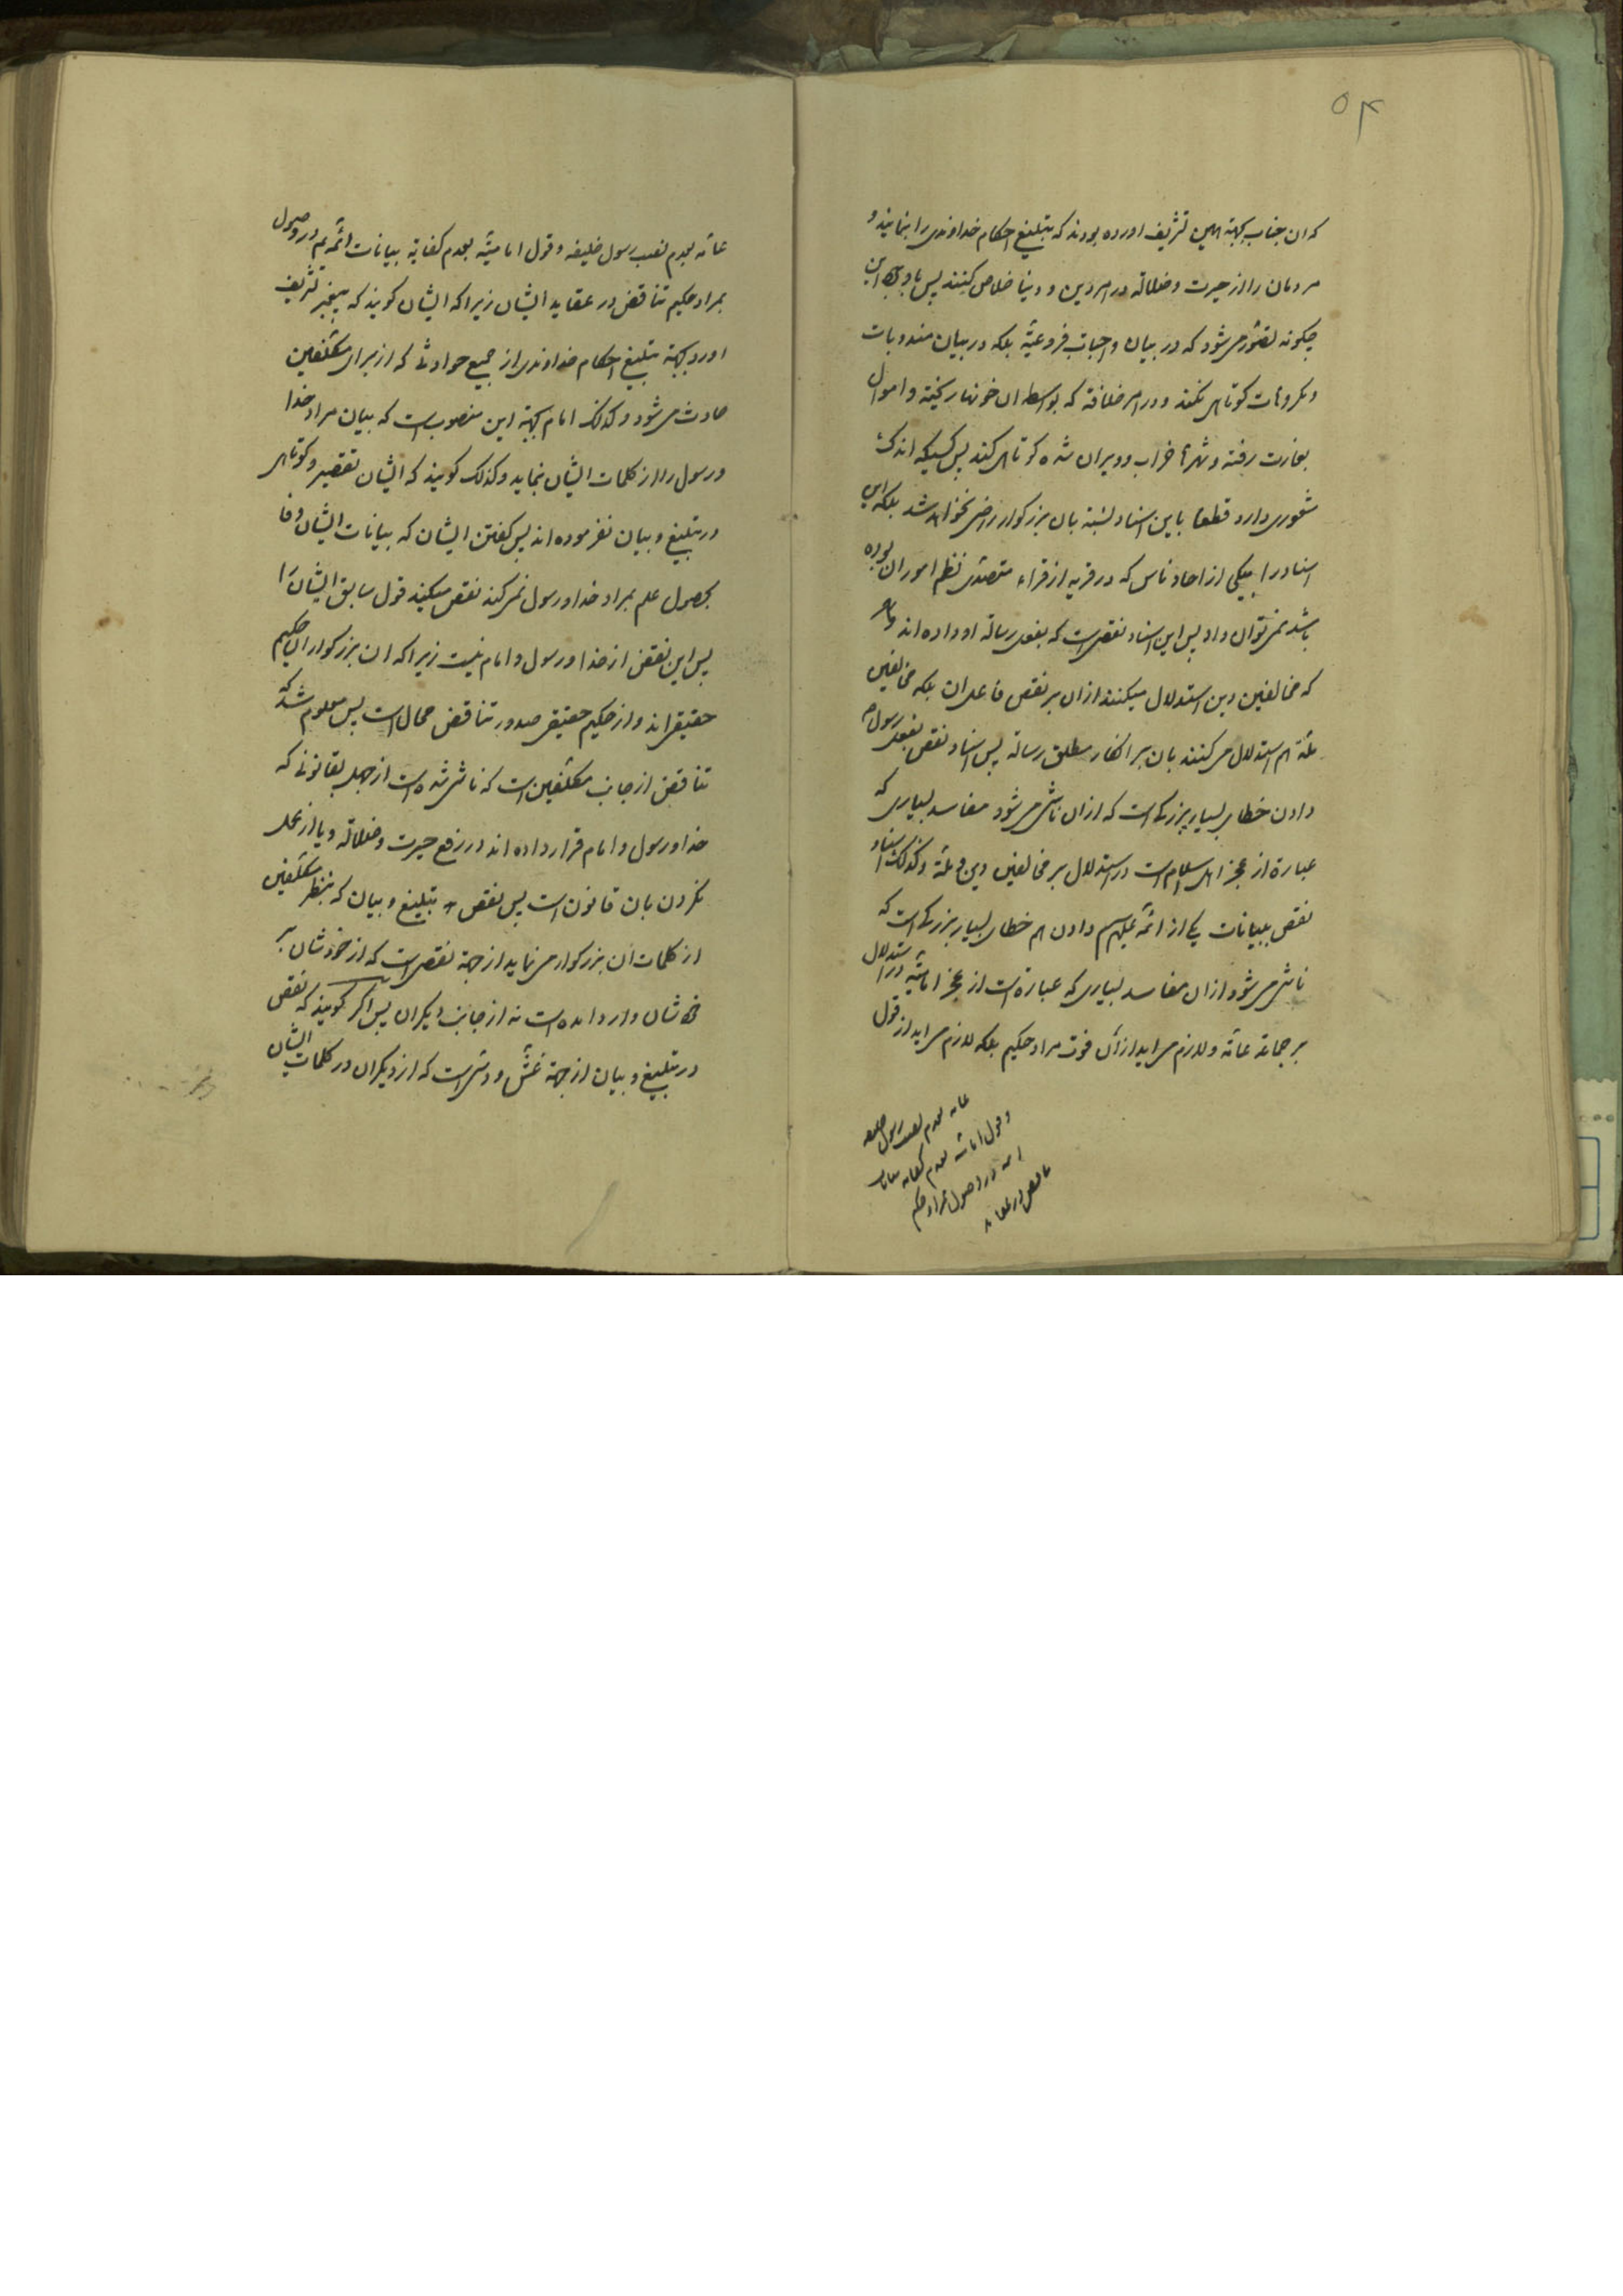 ۵۴
که ان جناب بجهة همین تشریف اورده بودند که تبلیغ احکام خداوندی را بنمایند و
مردمان را از حیرت وضلالة در امر دین و دنیا خلاص کنند پس با وجود این
چکونه تصور می شود که در بیان واجبات فروعیّه بلکه در بیان مندوبات
ومکروهات کوتاهی نکنند و در امر خلافة که بواسطه ان خونها ریخته و اموال
بغارت رفته و شهرها خراب و ویران شده کوتاهی کند پس کسیکه اندک
شعوری دارد قطعا باین اسناد نسبة بان بزرکوار راضی نخواهد شد بلکه این
اسناد را بیکی از احاد ناس که در قریه از قراء متصدی نظم امور ان بوده
باشد نمی توان داد پس این اسناد نقصی است که بفعل رسالة او داده اند
که مخالفین دین استدلال میکنند از ان بر نقص فاعل ان بلکه مخالفین
ملّة هم استدلال می کنند بان بر انکار مطلق رسالة پس اسناد نقص بفعل رسول
دادن خطای بسیار بزرکی است که از ان ناشی می شود مفاسد بسیاری که
عبارة از عجز اهل اسلام است در استدلال بر مخالفین دین و ملّة وکذلک اسناد
نقص ببیانات یکی از ائمّه علیهم دادن هم خطای بسیار بزرکی است که
ناشی می شود از ان مفاسد بسیاری که عبارة است از عجز امامیّه در استدلال
بر جماعة عامّه و لازم می اید از ان فوت مراد حکیم بلکه لازم می اید از قول
عامه بعدم نصب رسول خلیفه
وقول امامیه بعدم کفایه بیانات
ائمه در وصول بمراد حکیم
تناقض در عقاید
عامّه بعدم نصب رسول خلیفه و قول امامیّه بعدم کفایة بیانات ائمّه در وصول
بمراد حکیم تناقض در عقاید ایشان زیرا که ایشان کویند که پیغمبر تشریف
اورد بجهة تبلیغ احکام خداوندی از جمیع حوادثی که از برای مکلّفین
حادث می شود و کذلک امام بجهة این منصوب است که بیان مراد خدا
ورسول را از کلمات ایشان بنماید وکذلک کویند که ایشان تقصیر و کوتاهی
در تبلیغ و بیان نفرموده اند پس کفتن ایشان که بیانات ایشان وفا
بحصول علم بمراد خدا و رسول نمی کند نقض میکند قول سابق ایشان را
پس این نقض از خدا و رسول و امام نیست زیرا که ان بزرکواران حکیم
حقیقی اند و از حکیم حقیقی صدور تناقض محال است پس معلوم شد که
تناقض از جانب مکلّفین است که ناشی شده است از جهل بقانونی که
خدا و رسول و امام قرار داده اند در رفع حیرت وضلالة و یا از عمل
نکردن بان قانون است پس نقص در تبلیغ و بیان که بنظر مکلّفین
از کلمات ان بزرکوار می نماید از جهة نقصی است که از خودشان بر
خودشان وارد امده است نه از جانب دیکران پس اکر کویند که نقص
در تبلیغ و بیان از جهة غشّ و دسّی است که از دیکران در کلمات ایشان